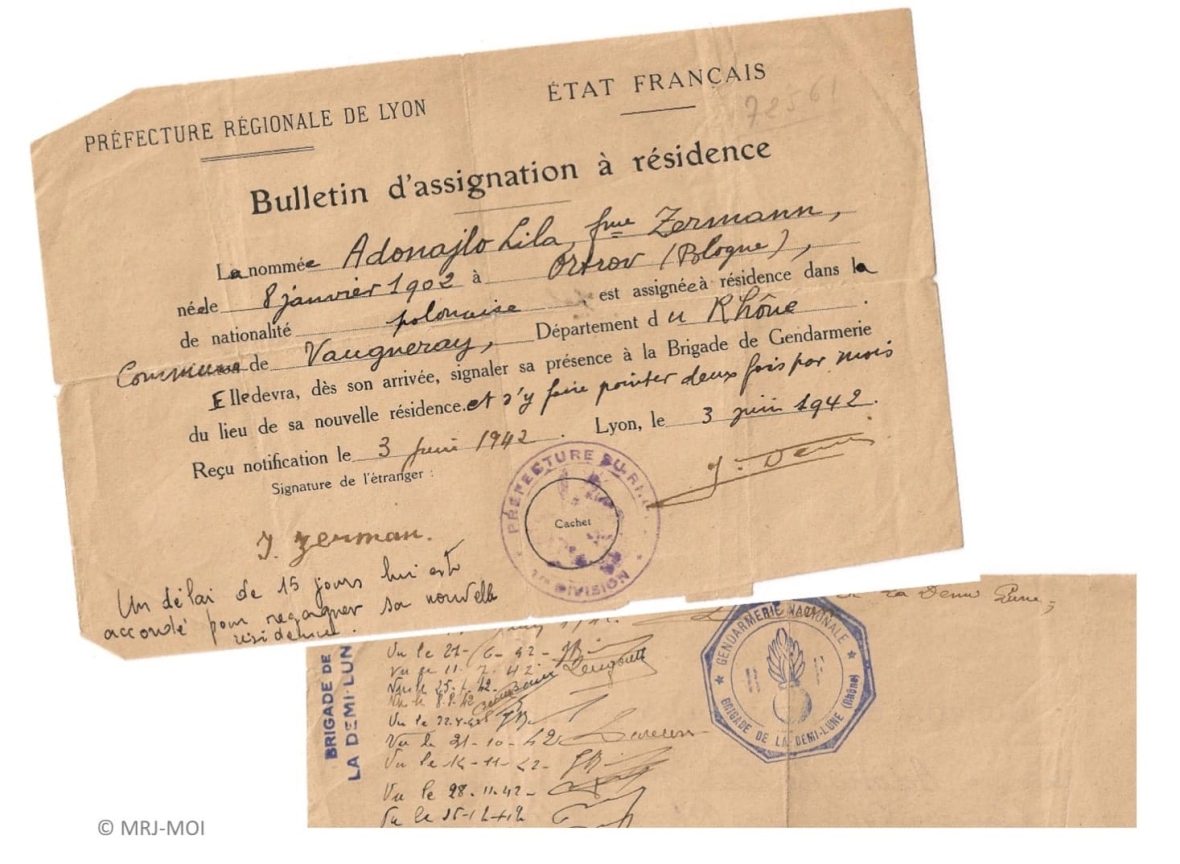 PRÉFECTURE RÉGIONALE DE LYON
ÉTAT FRANÇAIS
72561
Bulletin d'assignation à résidence
La nommée Adonajlo Lila, fme Zermann,
née le 8 janvier 1902 à Ostrov (Pologne),
de nationalité polonaise est assignée à résidence dans la
Commune de Vaugneray, Département du Rhône.
Elle devra, dès son arrivée, signaler sa présence à la Brigade de Gendarmerie
du lieu de sa nouvelle résidence. et s'y faire pointer deux fois par mois
Reçu notification le 3 juin 1942. Lyon, le 3 juin 1942.
Signature de l'étranger :
PRÉFECTURE DU
Cachet
1re DIVISION
Zerman.
Un délai de 15 jours lui est
accordé pour regagner sa nouvelle
résidence.
BRIGADE DE
LA DEMI-LUNE
Vu le 21-6-42
Vu le 11-7-42
Vu le 25-7-42
Vu le 8-8-42
Vu le
Vu le 21-10-42
Vu le 14-11-42-
Vu le 28-11-42-
Vu le
de la Demi Lune,
GENDARMERIE NATIONALE
BRIGADE DE LA DEMI-LUNE (Rhône)
© MRJ-MOI